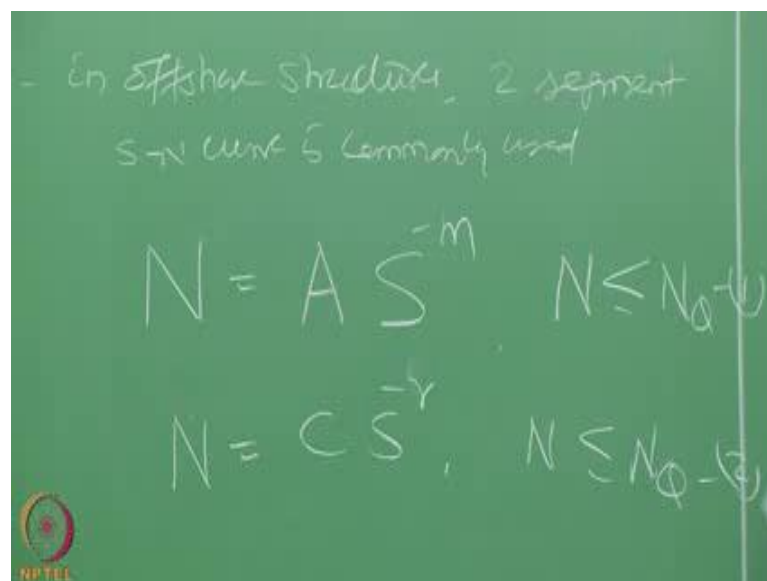 - In offshore structures, 2 segment
S-N curve is commonly used
N = A S^{-m} N ≤ N_Q -(1)
N = C S^{-r}, N ≤ N_Q -(2)
NPTEL